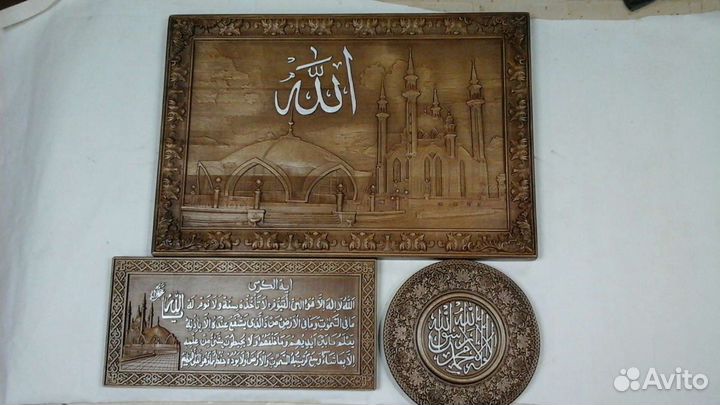 الله
آية الكرسي
الله
الله لا إله إلا هو الحي القيوم لا تأخذه سنة ولا نوم له
ما في السموت وما في الأرض من ذا الذي يشفع عنده إلا بإذنه
يعلم ما بين أيديهم وما خلفهم ولا يحيطون بشيء من علمه
إلا بما شاء وسع كرسيه السموت والأرض ولا يؤده حفظهما وهو العلي العظيم
لا إله إلا الله محمد رسول الله
Avito